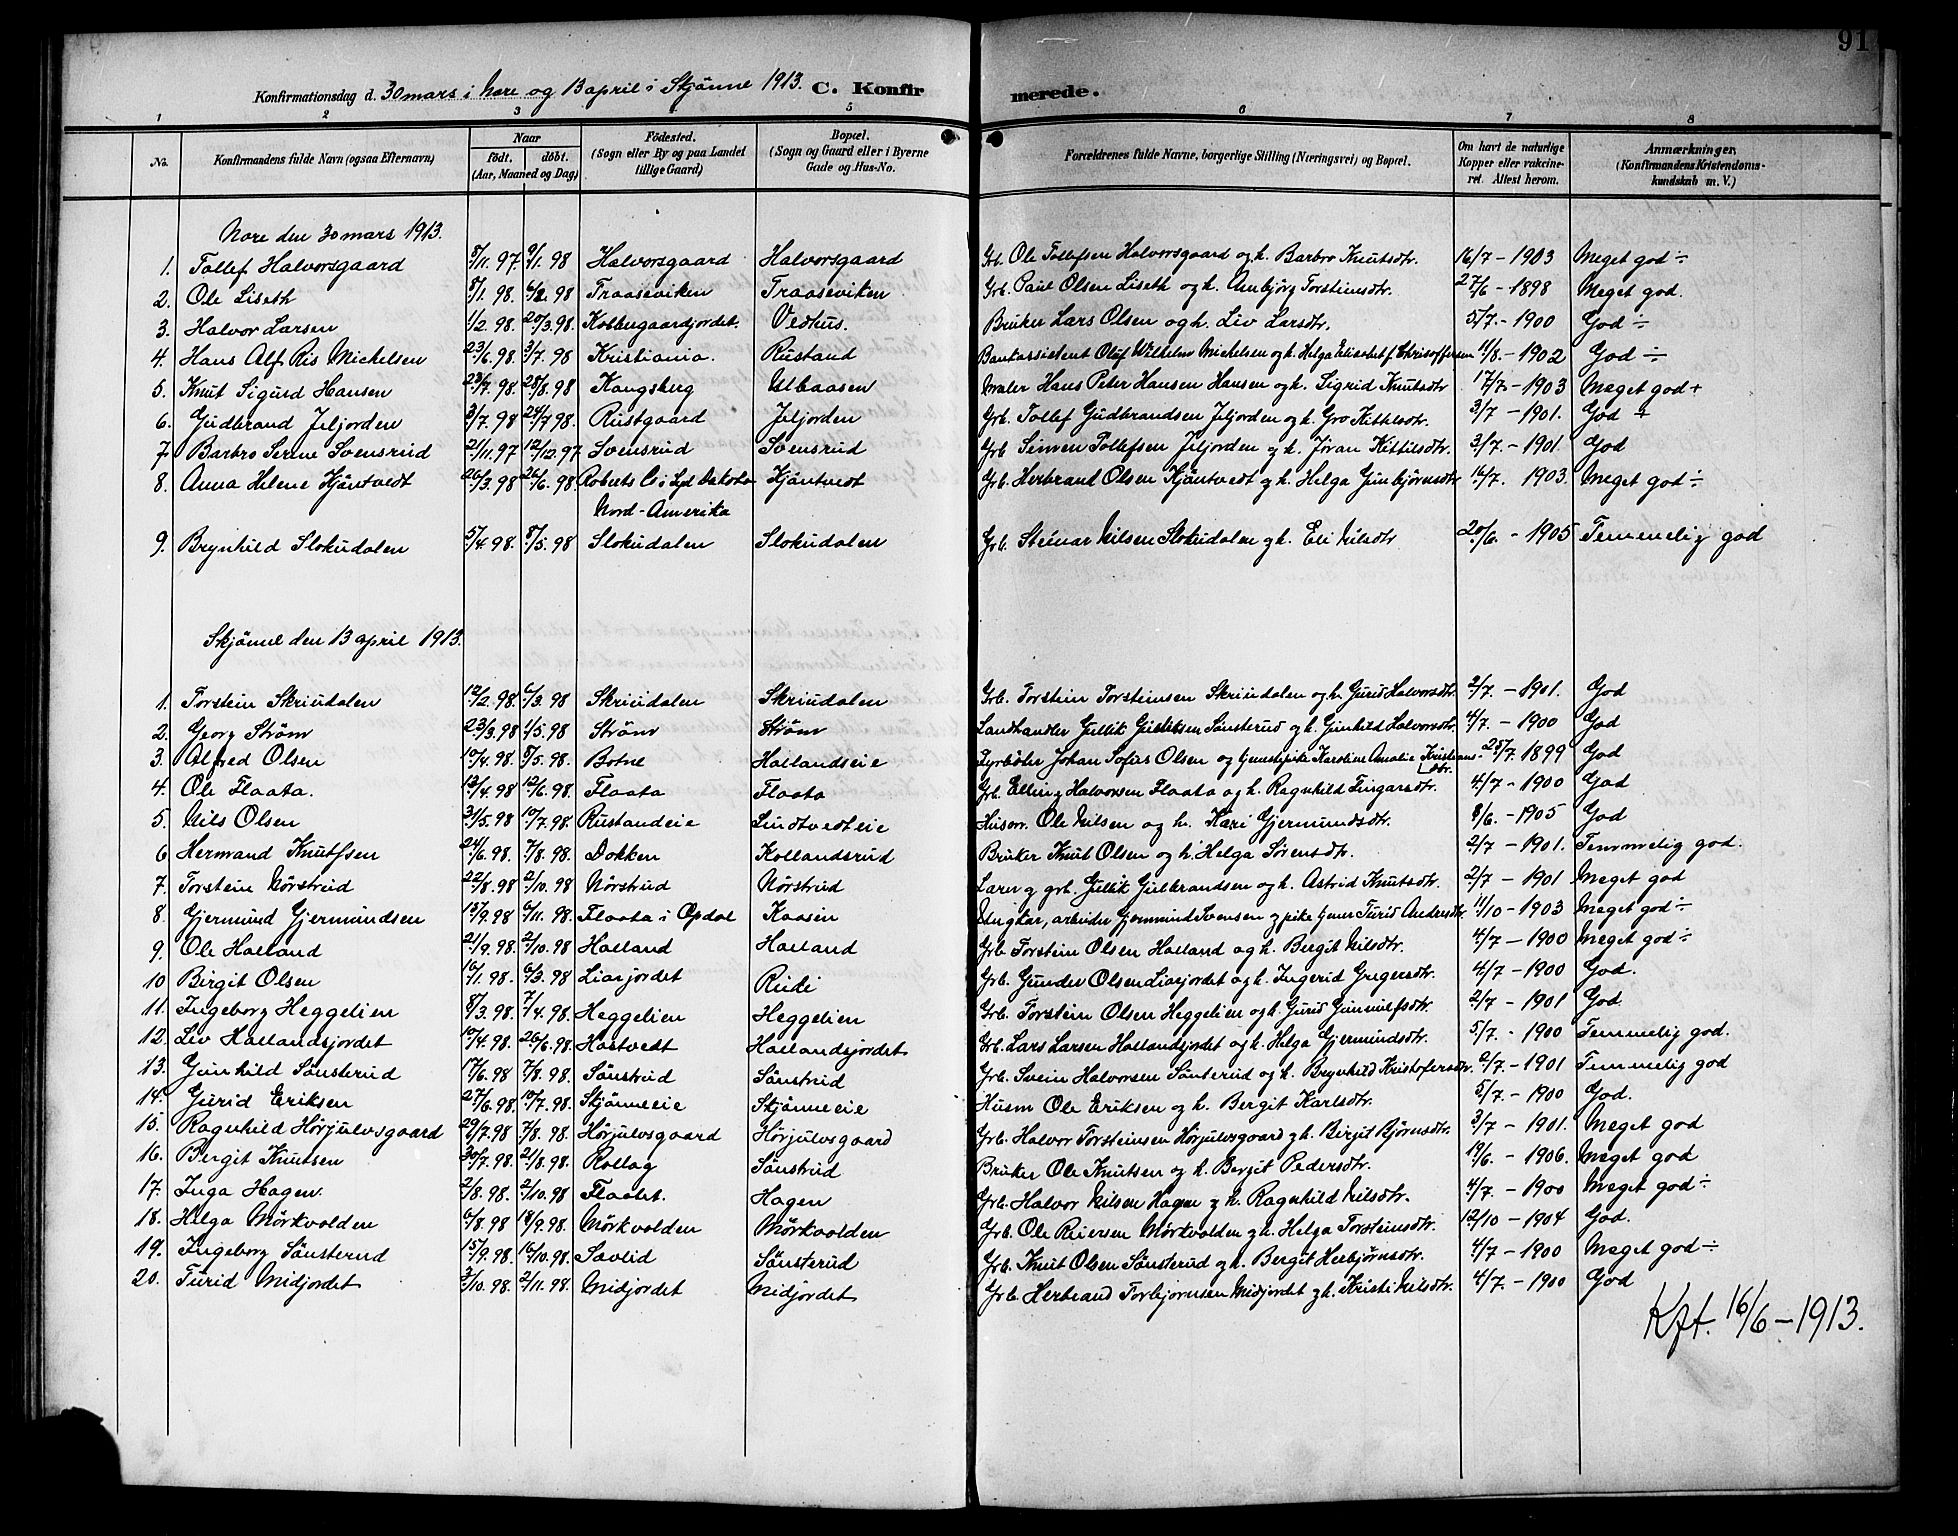 91
Konfirmationsdag d. 30 mars i Nore og 13 april i Skjønne 1913. C. Konfirmerede.
1 2 3 4 5 6 7 8
No. Konfirmandens fulde Navn (ogsaa Efternavn) Naar født. døbt. (Aar, Maaned og Dag) Fødested. (Sogn eller By og paa Landet tillige Gaard) Bopæl. (Sogn og Gaard eller i Byerne Gade og Hus-No. Forældrenes fulde Navne, borgerlige Stilling (Næringsvei) og Bopæl. Om havt de naturlige Kopper eller vakcineret. Attest herom. Anmærkninger. (Konfirmandens Kristendomskundskab m. V.)
Nore den 30 mars 1913.
1. Tollef Halvorsgaard 8/11. 97. 9/1. 98 Halvorsgaard Halvorsgaard Grb. Ole Tollefsen Halvorsgaard og h. Barbro Knutsdtr. 16/7 - 1903 Meget god ÷
2. Ole Liseth 8/1. 98. 6/2. 98 Traaseviken Traaseviken Grb. Paul Olsen Liseth og h. Anbjørg Torsteinsdtr. 27/6 - 1898 Meget god.
3. Halvor Larsen 1/2. 98. 20/3. 98. Kobbergaardjordet. Vedhus. Bruker Lars Olsen og h. Liv Larsdtr. 5/7. - 1900 God ÷
4. Hans Alf Ris Mickelsen 23/6. 98. 3/7. 98 Kristiania. Rustand Bankassistent Oluf Wilhelm Mickelsen og h. Helga Elisabet f. Chrisoffersen 11/8. - 1902 God ÷
5. Knut Sigurd Hansen 23/7. 98. 28/8. 98 Kongsberg Ulbaasen Maler Hans Peter Hansen Hansen og h. Sigrid Knutsdtr 17/7 - 1903 Meget god +
6. Gudbrand Jeljorden 3/7. 98 24/7 98. Rustgaard Jeljorden Grb. Tollef Gudbrandsen Jeljorden og h. Gro Kittilsdtr. 3/7 - 1901. God +
7. Barbro Serine Svensrud 21/11. 97 12/12. 97 Svensrud Svensrud Grb Simen Tollefsen Jeljorden og h. Jøran Kittilsdtr. 3/7. - 1901. God
8. Anna Helene Kjøntvedt 26/3. 98 26/6. 98. Roberts Co i Syd Dakota Kjøntvedt Grb. Herbrand Olsen Kjøntvedt og h. Helga Gunbjørnsdtr 16/7. 1903. Meget god ÷
Nord-Amerika
9. Brynhild Slokudalen 5/4. 98. 8/5. 98 Slokudalen Slokudalen Grb. Steinar Nilsen Slokudalen og h. Eli Nilsdtr 20/6. - 1905 Temmelig god
Skjønne den 13 april 1913.
1. Torstein Skriudalen 12/2. 98. 6/3. 98 Skriudalen Skriudalen Grb. Torstein Torsteinsen Skriudalen og h. Gurid Halvorsdtr. 2/7. - 1901. God
2. Georg Strøm 23/3. 98 1/5. 98 Strøm Strøm Landhandler Gullik Gulliksen Sønsterud og h. Gunhild Halvorsdtr. 4/7. - 1900 God
3. Alfred Olsen 10/4. 98. 8/5. 98. Botne Hallandseie Fyrbøter Johan Sofus Olsen og Tjenestepike Karoline Amalie Kristiansdtr. 25/7. 1899 God
4. Ole Flaata. 13/4. 98 12/6. 98. Flaata Flaata Grb. Elling Halvorsen Flaata og h. Ragnhild Fingarsdtr. 4/7 - 1900 God
5. Nils Olsen 31/5. 98 10/7. 98. Rustandeie Lundtvedteie Husm. Ole Nilsen og h. Kari Gjermundsdtr. 8/6. - 1905 God
6 Hermand Knutssen 24/6. 98. 7/8. 98. Dokken Kollandsrud Bruker Knut Olsen og h. Helga Sørensdtr. 2/7 - 1901. Temmelig god.
7. Torstein Nørstrud 22/8. 98 2/10. 98 Nørstrud Nørstrud Lærer og grb. Gullik Gulbrandsen og h. Astrid Knutsdtr. 2/7 - 1901 Meget god
8. Gjermund Gjermundsen 15/9. 98 6/11. 98. Flaata i Opdal Kaasin Ungkar, arbeider Gjermund Svensen og pike Gunn Turid Andersdtr. 11/10 - 1903 Meget god ÷
9. Ole Halland 21/9. 98. 2/10. 98 Halland Halland Grb. Torstein Olsen Halland og h. Bergit Nilsdtr. 4/7 - 1900 Meget god ÷
10 Birgit Olsen 16/1. 98. 6/3. 98 Liarjordet Rudi Grb. Gunder Olsen Liarjordet og h. Ingerid Gregersdtr. 4/7 - 1900 God.
11. Ingeborg Heggelien 8/3. 98 7/4. 98. Heggelien Heggelien Grb. Torstein Olsen Heggelien og h. Gurid Gunnulfsdtr. 2/7 - 1901 God.
12. Liv Hallandsjordet 10/4. 98. 26/6. 98. Hastvedt Hallandsjordet Grb. Lars Larsen Hallandsjordet og h. Helga Gjermundsdtr. 5/7. - 1900 Temmelig god.
13. Gunhild Sønsterud 17/6. 98 7/8. 98. Sønstrud Sønstrud Grb. Svein Halvorsen Sønterud og h. Brynhild Kristofersdtr. 2/7 - 1901 Temmelig god
14. Gurid Eriksen 27/6. 98. 10/7. 98. Skjønneeie Skjønneeie Husm Ole Eriksen og h. Bergit Karlsdtr. 5/7. - 1900 God.
15. Ragnhild Hørjulvsgaard 29/7. 98 7/8. 98. Hørjulvsgaard Hørjulvsgaard Grb. Halvor Torsteinsen Hørjulvsgaard og h. Birgit Bjørnsdtr. 3/7 - 1901. Meget god
16. Bergit Knutsen 30/7. 98. 21/8. 98. Rollag Sønstrud Bruker Ole Knutsen og h. Bergit Pedersdtr. 19/6. - 1906. Meget god
17. Inga Hagen. 2/8. 98. 2/10. 98 Flaatet. Hagen Grb. Halvor Nilsen Hagen og h. Ragnhild Nilsdtr. 4/7. - 1900 Meget god ÷
18. Helga Mørkvolden 6/8. 98 18/9. 98. Mørkvolden Mørkvolden Grb. Ole Reiersen Mørkvolden og h. Helga Torsteinsdtr. 12/10 - 1904 God.
19. Ingeborg Sønsterud 15/9. 98. 16/10. 98. Savlid Sønsterud Grb. Knut Olsen Sønsterud og h. Bergit Herbjørnsdtr. 4/7 - 1900 Meget god ÷
20. Turid Midjordet 2/10. 98. 2/11. 98. Midjordet Midjordet Grb. Herbrand Torbjørnsen Midjordet og h. Kristi Nilsdtr. 4/7. - 1900 God
Kft. 16/6 - 1913.